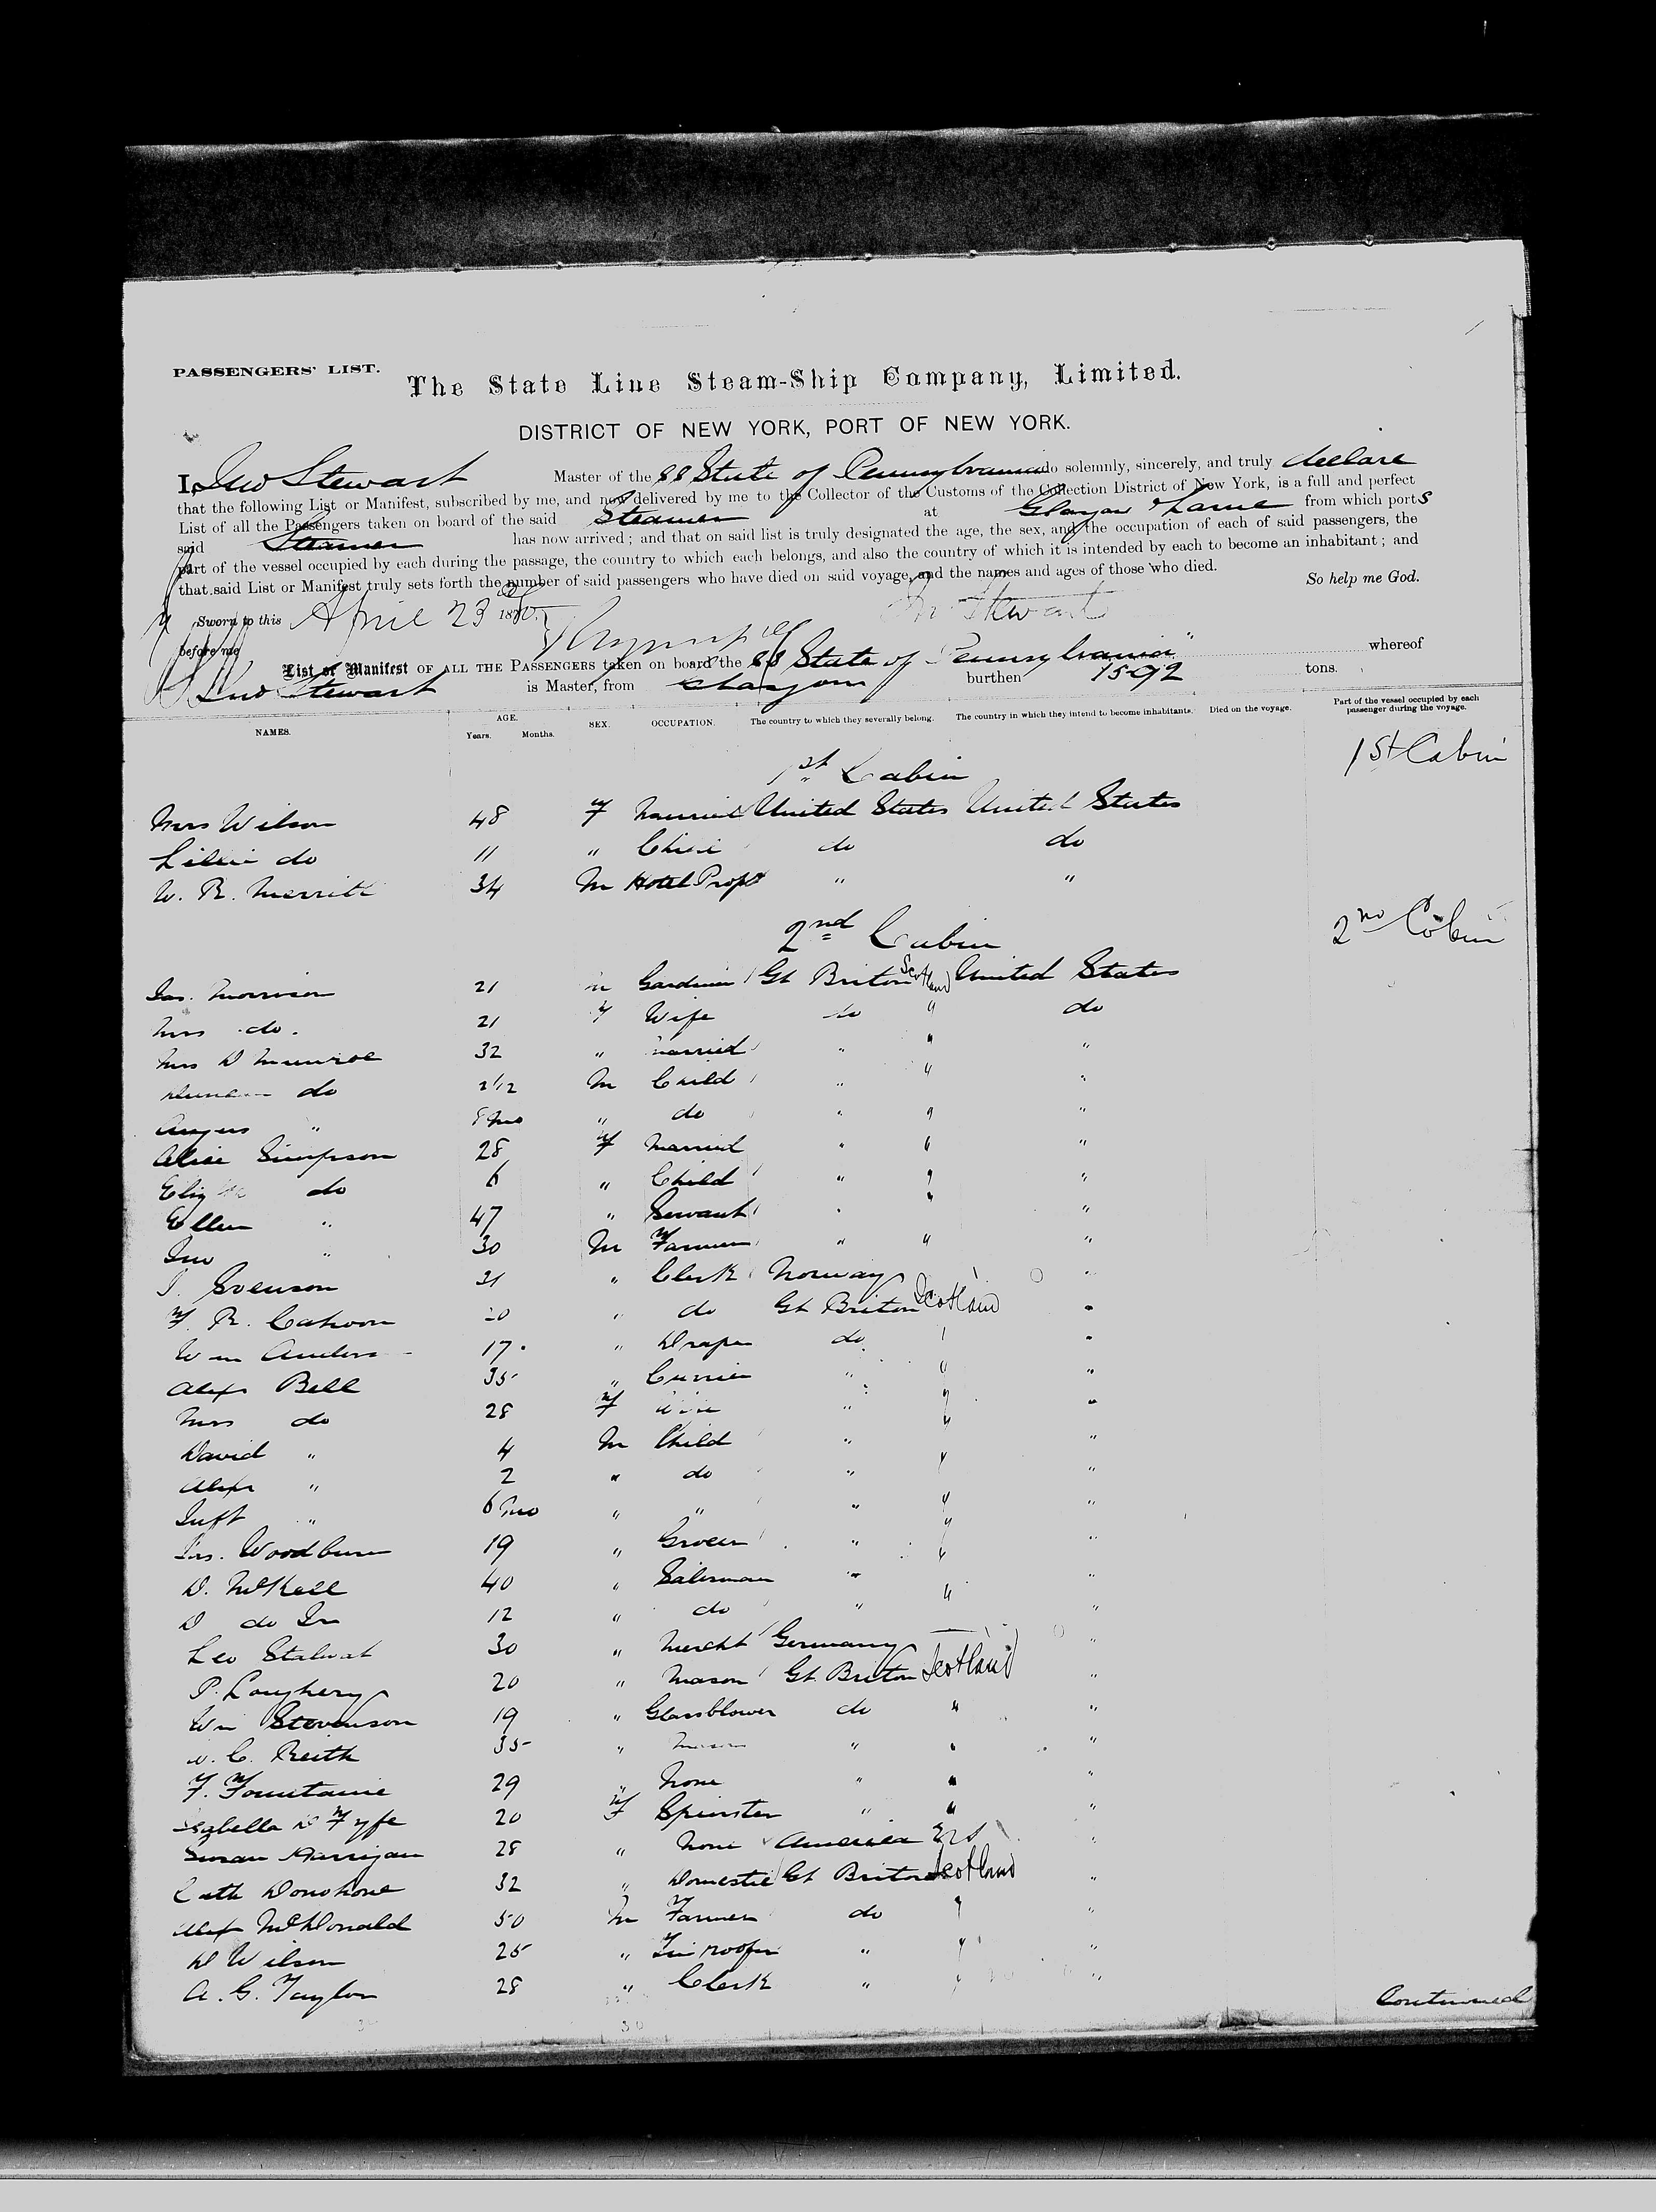 PASSENGERS' LIST.
The State Line Steam-Ship Company, Limited.
DISTRICT OF NEW YORK, PORT OF NEW YORK.
I, Jno Stewart Master of the SS State of Pennsylvania do solemnly, sincerely, and truly declare
that the following List or Manifest, subscribed by me, and now delivered by me to the Collector of the Customs of the Collection District of New York, is a full and perfect
List of all the Passengers taken on board of the said Steamer at Glasgow & Larne from which ports
said Steamer has now arrived; and that on said list is truly designated the age, the sex, and the occupation of each of said passengers, the
part of the vessel occupied by each during the passage, the country to which each belongs, and also the country of which it is intended by each to become an inhabitant; and
that said List or Manifest truly sets forth the number of said passengers who have died on said voyage, and the names and ages of those who died.
So help me God.
Sworn to this April 23 18 Jn Stewart
before me
List or Manifest OF ALL THE PASSENGERS taken on board the SS State of Pennsylvania" whereof
Jno Stewart is Master, from Glasgow burthen 1592 tons.
NAMES. AGE. Years. Months. SEX. OCCUPATION. The country to which they severally belong. The country in which they intend to become inhabitants. Died on the voyage. Part of the vessel occupied by each passenger during the voyage.
1st Cabin 1st Cabin
Mrs Wilson 48 F Married United States United States
Lillie do 11 " Child do do
W. R. Merritt 34 M Hotel Propr " "
2nd Cabin 2nd Cabin
Jas. Morrison 21 M Gardner Gt Briton Scotland United States
Mrs do. 21 F Wife do " do
Mrs D Munroe 32 " Married " " "
Duncan do 2 1/2 M Child " " "
Angus " 8 mo " do " " "
Alice Simpson 28 F Married " " "
Eliz do 6 " Child " " "
Ellen " 47 " Servant " " "
Jno " 30 M Farmer " " "
J. Svenson 31 " Clerk Norway "
F. R. Cahoon 20 " do Gt Briton Scotland "
Wm 17 " Draper do "
Alex Bell 35 " Currier " " "
Mrs do 28 F Wife " " "
David " 4 M Child " " "
Alex " 2 " do " " "
Inft " 6 mo " " " " "
Jas. Woodburn 19 " Grocer " " "
D. McKell 40 " Salesman " " "
D do Jr 12 " do " " "
Leo 30 " Mercht Germany "
P. Loughery 20 " Mason Gt. Briton Scotland "
Wm Stevenson 19 " Glassblower do " "
C. Reith 35 " Mason " " "
F. Fountaine 29 " None " " "
Isabella D Fyfe 20 F Spinster " " "
Susan Harrigan 28 " None America "
Cath Donohoue 32 " Domestic Gt Briton Scotland "
Alex McDonald 50 M Farmer do " "
D Wilson 25 " Tin roofer " " "
A. G. Taylor 28 " Clerk " " "
Continued